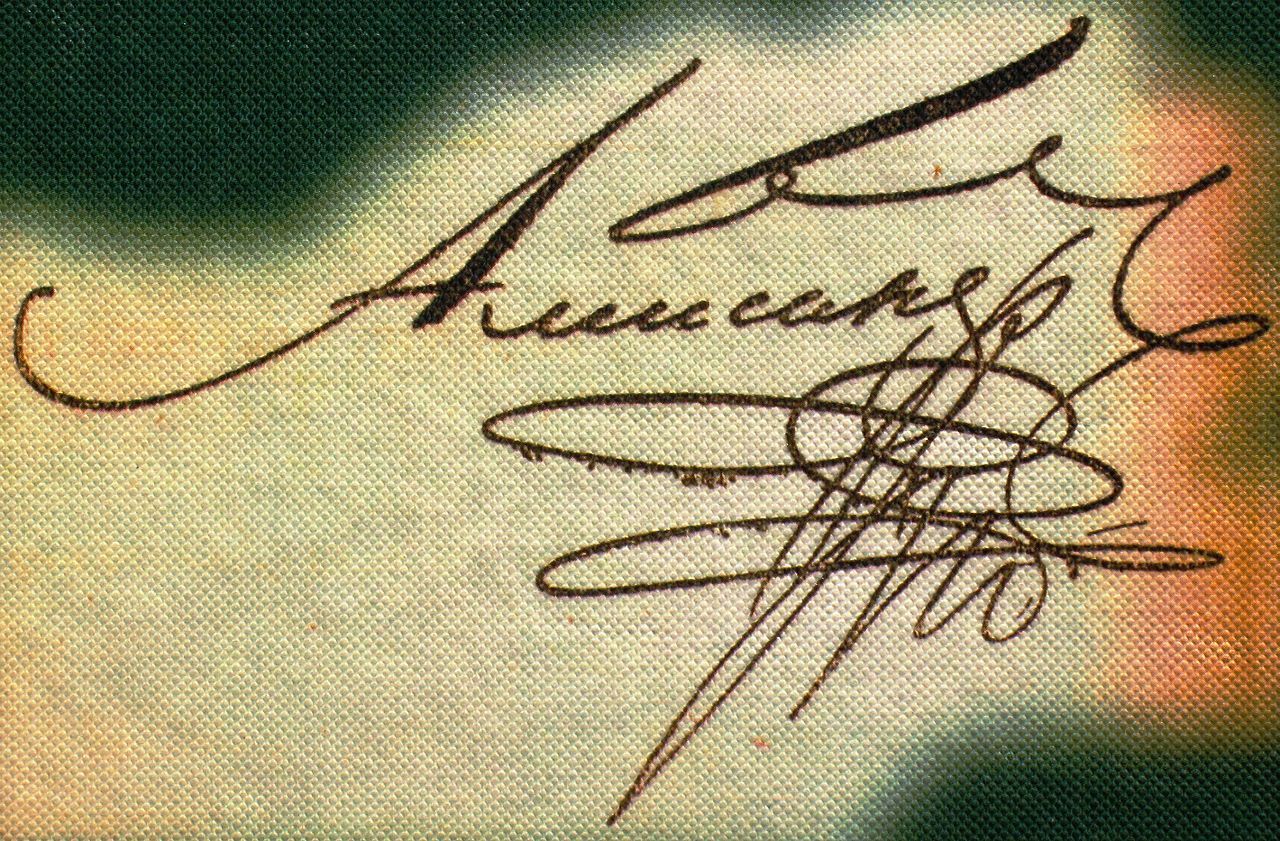 Александръ